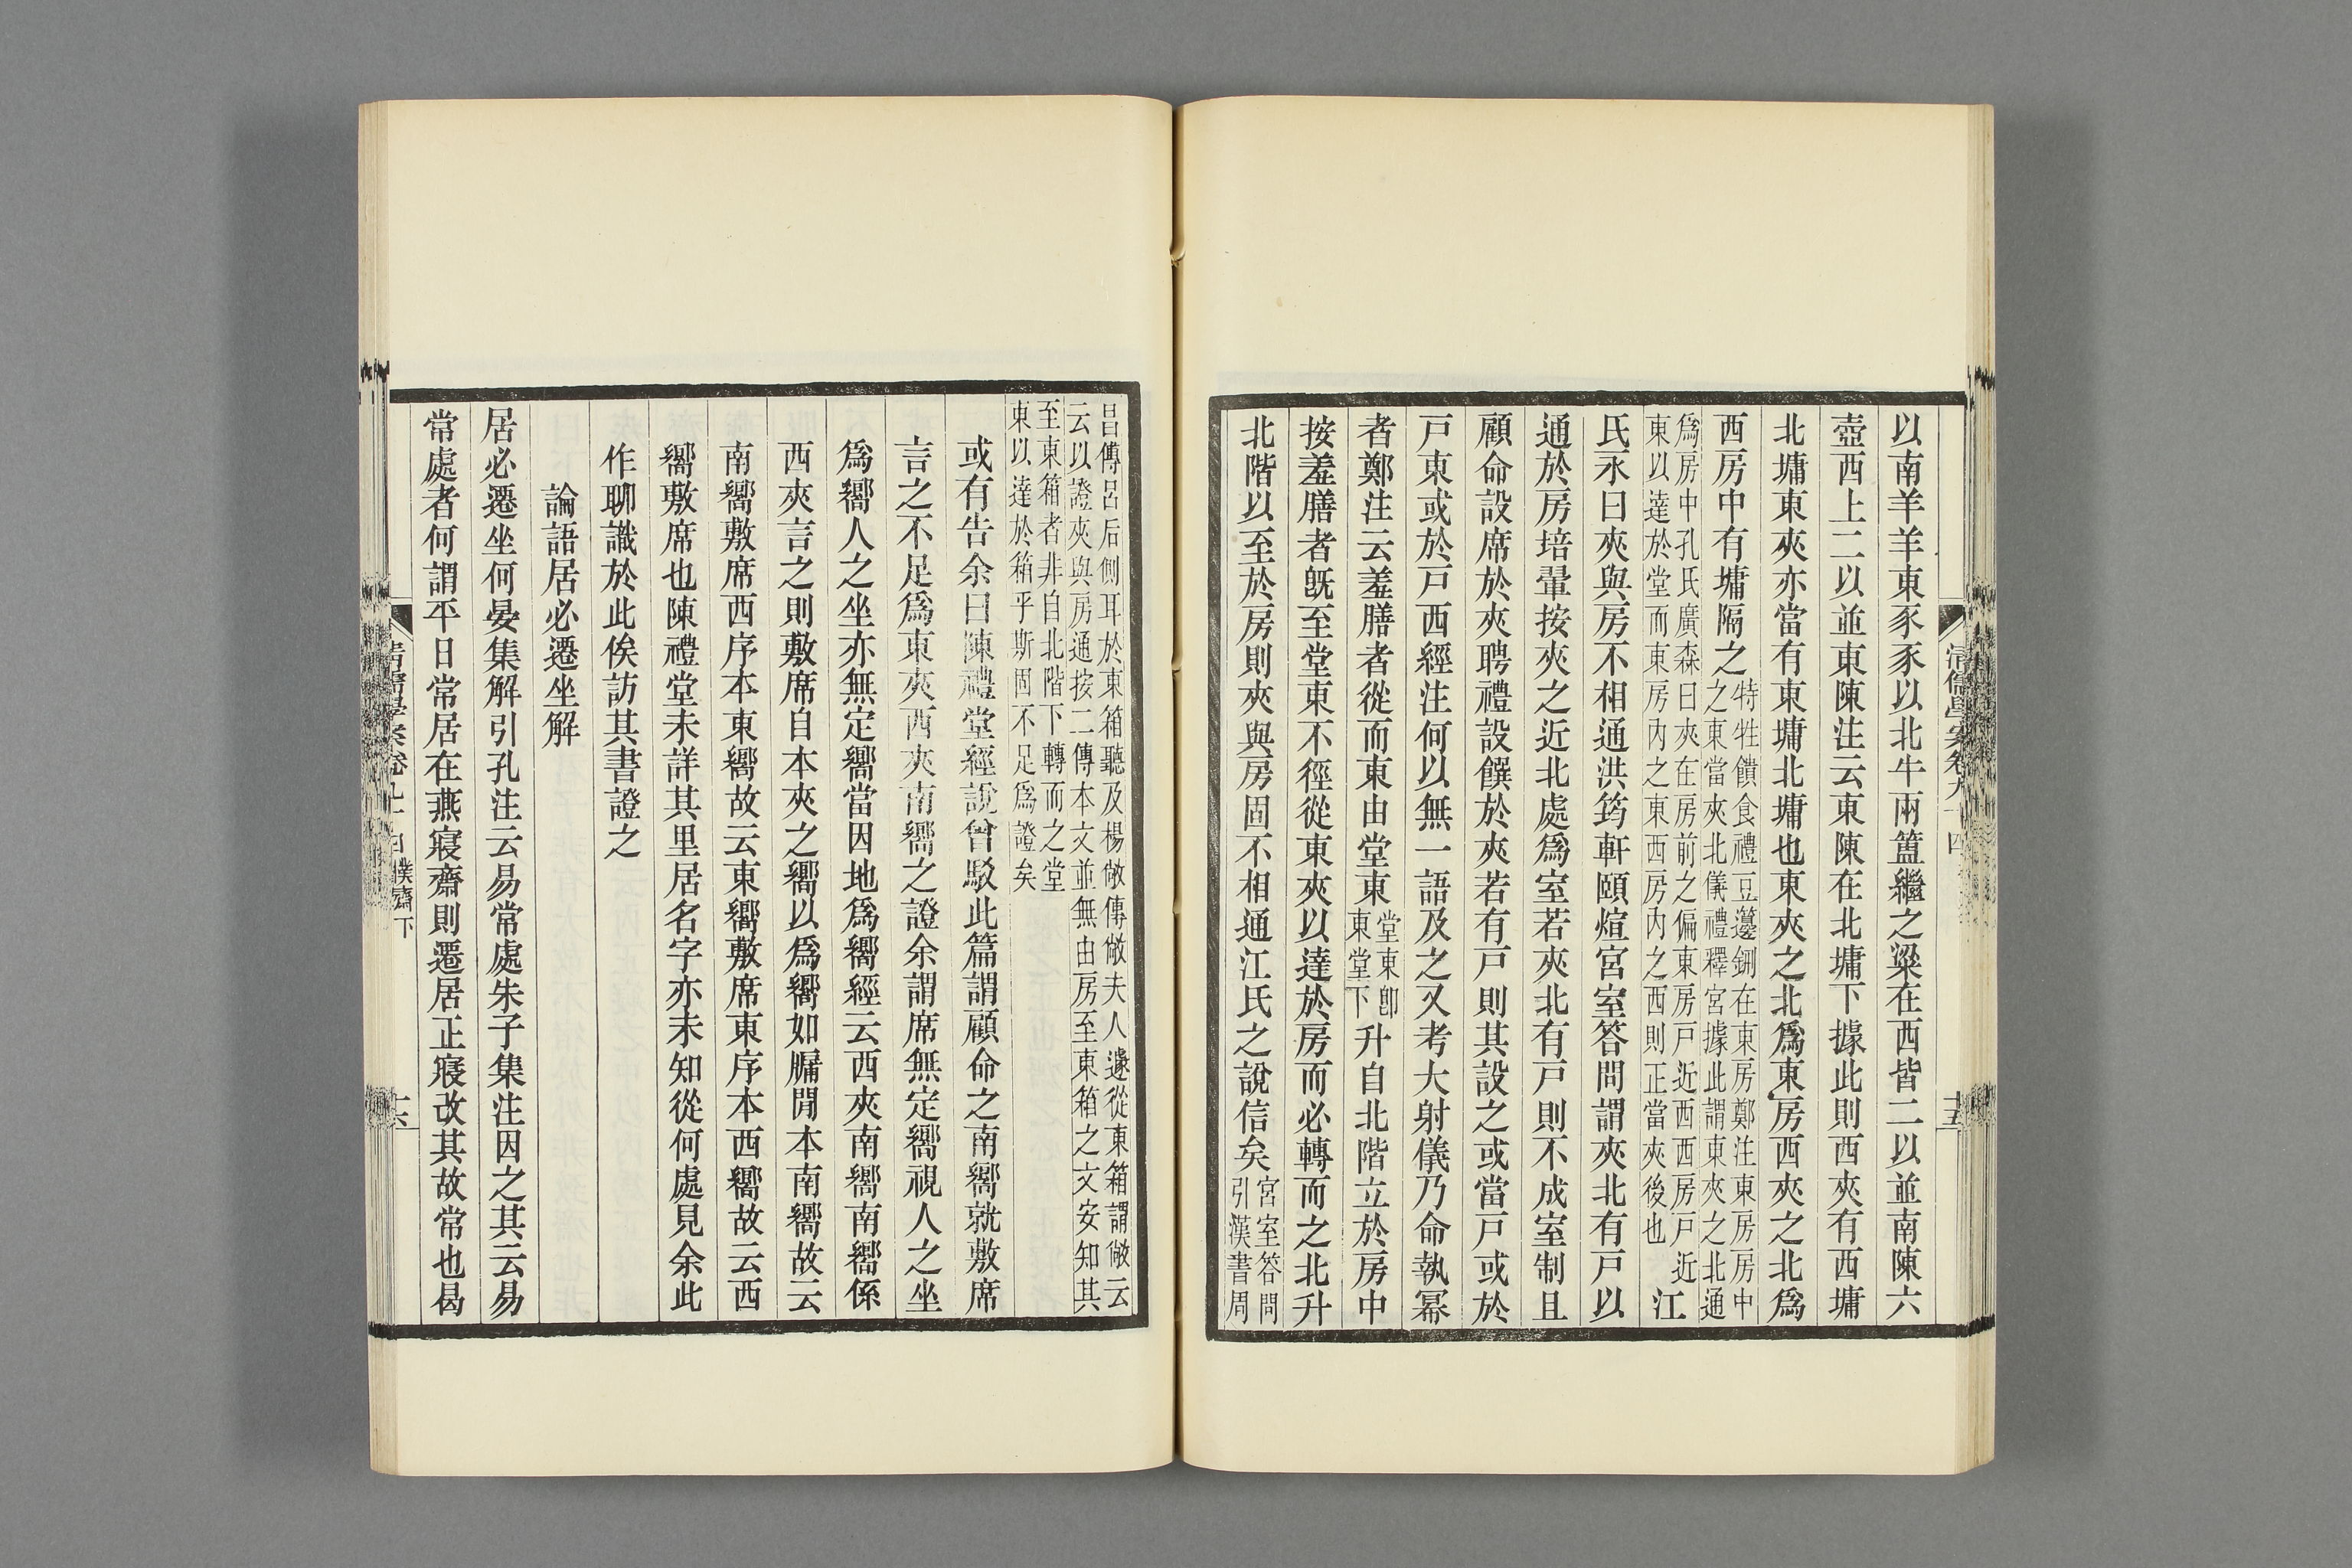 以南羊羊東豕豕以北牛兩簠繼之粱在西皆二以並南陳六
壺西上二以並東陳注云東陳在北墉下據此則西夾有西墉
北墉東夾亦當有東墉北墉也東夾之北爲東房西夾之北爲
西房中有墉隔之
特牲饋食禮豆籩鉶在東房鄭注東房房中
之東當夾北儀禮釋宮據此謂東夾之北通
爲房中孔氏廣森曰夾在房前之偏東房戶近西西房戶近
東以達於堂而東房內之東西房內之西則正當夾後也
江
氏永曰夾與房不相通洪筠軒頤煊宮室答問謂夾北有戶以
通於房培翬按夾之近北處爲室若夾北有戶則不成室制且
顧命設席於夾聘禮設饌於夾若有戶則其設之或當戶或於
戶東或於戶西經注何以無一語及之又考大射儀乃命執冪
者鄭注云羞膳者從而東由堂東
堂東卽
東堂下
升自北階立於房中
按羞膳者旣至堂東不徑從東夾以達於房而必轉而之北升
北階以至於房則夾與房固不相通江氏之說信矣
宮室答問
引漢書周
昌傳呂后側耳於東箱聽及楊敞傳敞夫人遽從東箱謂敞云
云以證夾與房通按二傳本文並無由房至東箱之文安知其
至東箱者非自北階下轉而之堂
東以達於箱乎斯固不足爲證矣
或有告余曰陳禮堂經說曾駁此篇謂顧命之南嚮就敷席
言之不足爲東夾西夾南嚮之證余謂席無定嚮視人之坐
爲嚮人之坐亦無定嚮當因地爲嚮經云西夾南嚮南嚮係
西夾言之則敷席自本夾之嚮以爲嚮如牖閒本南嚮故云
南嚮敷席西序本東嚮故云東嚮敷席東序本西嚮故云西
嚮敷席也陳禮堂未詳其里居名字亦未知從何處見余此
作聊識於此俟訪其書證之
論語居必遷坐解
居必遷坐何晏集解引孔注云易常處朱子集注因之其云易
常處者何謂平日常居在燕寢齋則遷居正寢改其故常也曷
清儒學案卷九十四 樸齋下
十六
清儒學案卷九十四
十五